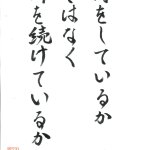 をしているか
はなく
を続けているか